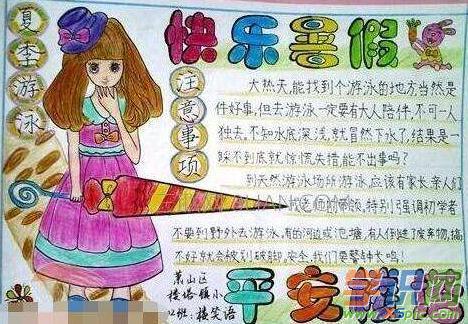 快乐暑假
夏季游泳
注意事项
大热天,能找到个游泳的地方当然是
件好事,但去游泳一定要有大人陪伴,不可一人
独去,不知水底深浅,就冒然下水了,结果是一
踩不到底就惊慌失措,能不出事吗?
到天然游泳场所游泳,应该有家长、亲人们
或老师的带领,特别强调初学者
不要到野外去游泳,有的河边或池塘,有人倒建了废弃物,搞
不好就会被划破脚,安全,我们要警钟长鸣!
萧山区
楼塔镇小
班:楼笑语
平安